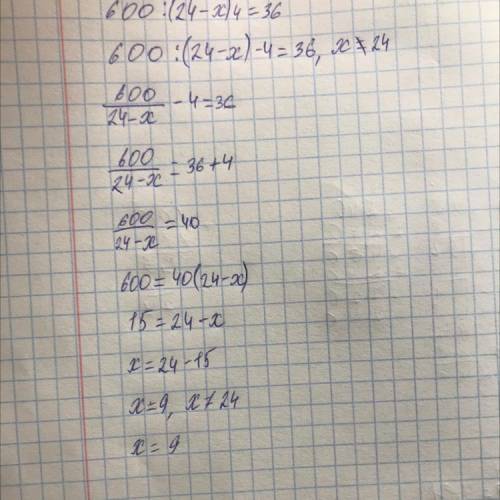 600 : (24-x) 4 = 36
600 : (24-x) -4 = 36, x ≠ 24
600/(24-x) - 4 = 36
600/(24-x) = 36+4
600/(24-x) = 40
600 = 40(24-x)
15 = 24-x
x = 24-15
x = 9, x ≠ 24
x = 9